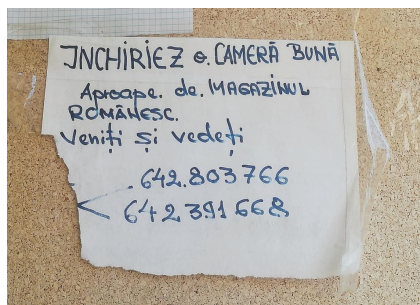 ÎNCHIRIEZ O. CAMERĂ BUNĂ
Aproape. de. MAGAZINUL
ROMÂNESC.
Veniți și vedeți
642.803766
642391668